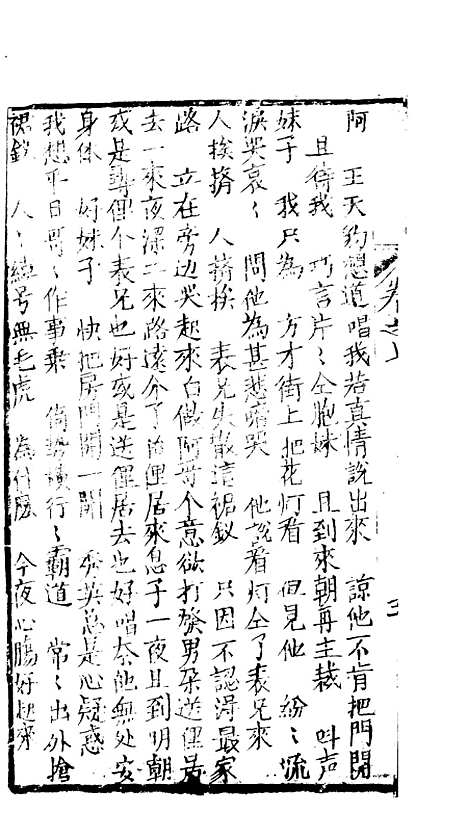 卷之上
三
阿 王天豹想道唱我若真情說出來 諒他不肯把門開
且待我 巧言片〻仝胞妹 且到來朝再主裁 叫声
妹子 我只為 方才街上把花灯看 但見他 紛〻流
淚哭哀〻 問他為甚悲啼哭 他說看灯仝了表兄來
人挨擠 人擠挨 表兄失散這裙釵 只因不認得歸家
路 立在旁边哭起來白做阿哥个意欲打發男朶送俚居
去一來夜深二來路遠分了俚居來息子一夜且到明朝
或是尋俚个表兄也好或是送俚居去也好唱奈他無处安
身体 好妹子 快把房門開一開 秀英总是心疑惑
我想平日哥〻作事乗 倚势横行〻霸道 常〻出外搶
裙釵 人〻綽号無毛虎 為什麽 今夜心腸好起來